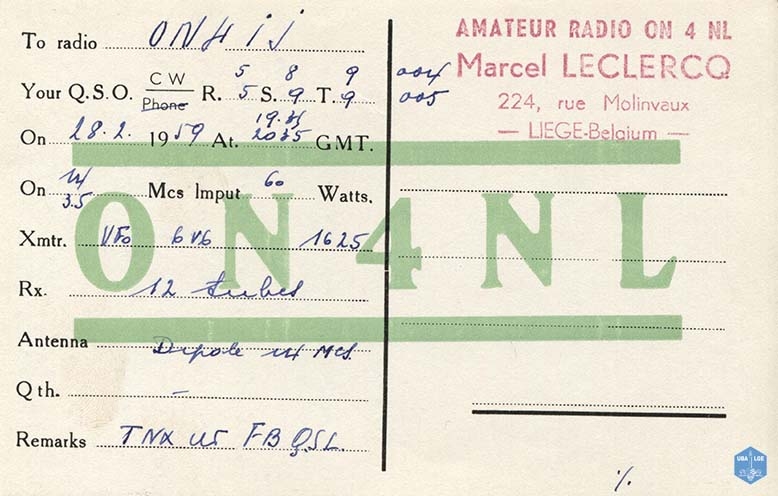 To radio ON4IJ
AMATEUR RADIO ON 4 NL
Marcel LECLERCQ
224, rue Molinvaux
— LIEGE-Belgium —
5 8 9 004
Your Q.S.O. CW Phone R. 5 S. 9 T. 9 005
19.31
On 28.2. 1959 At. 2035 GMT.
14
On 3.5 Mcs Imput 60 Watts.
ON4NL
Xmtr. VFO 6V6 1625
Rx. 12 tubes
Antenna Dipole 14 Mcs.
Qth. —
Remarks TNX UR FB QSL.
%.
UBA LGE